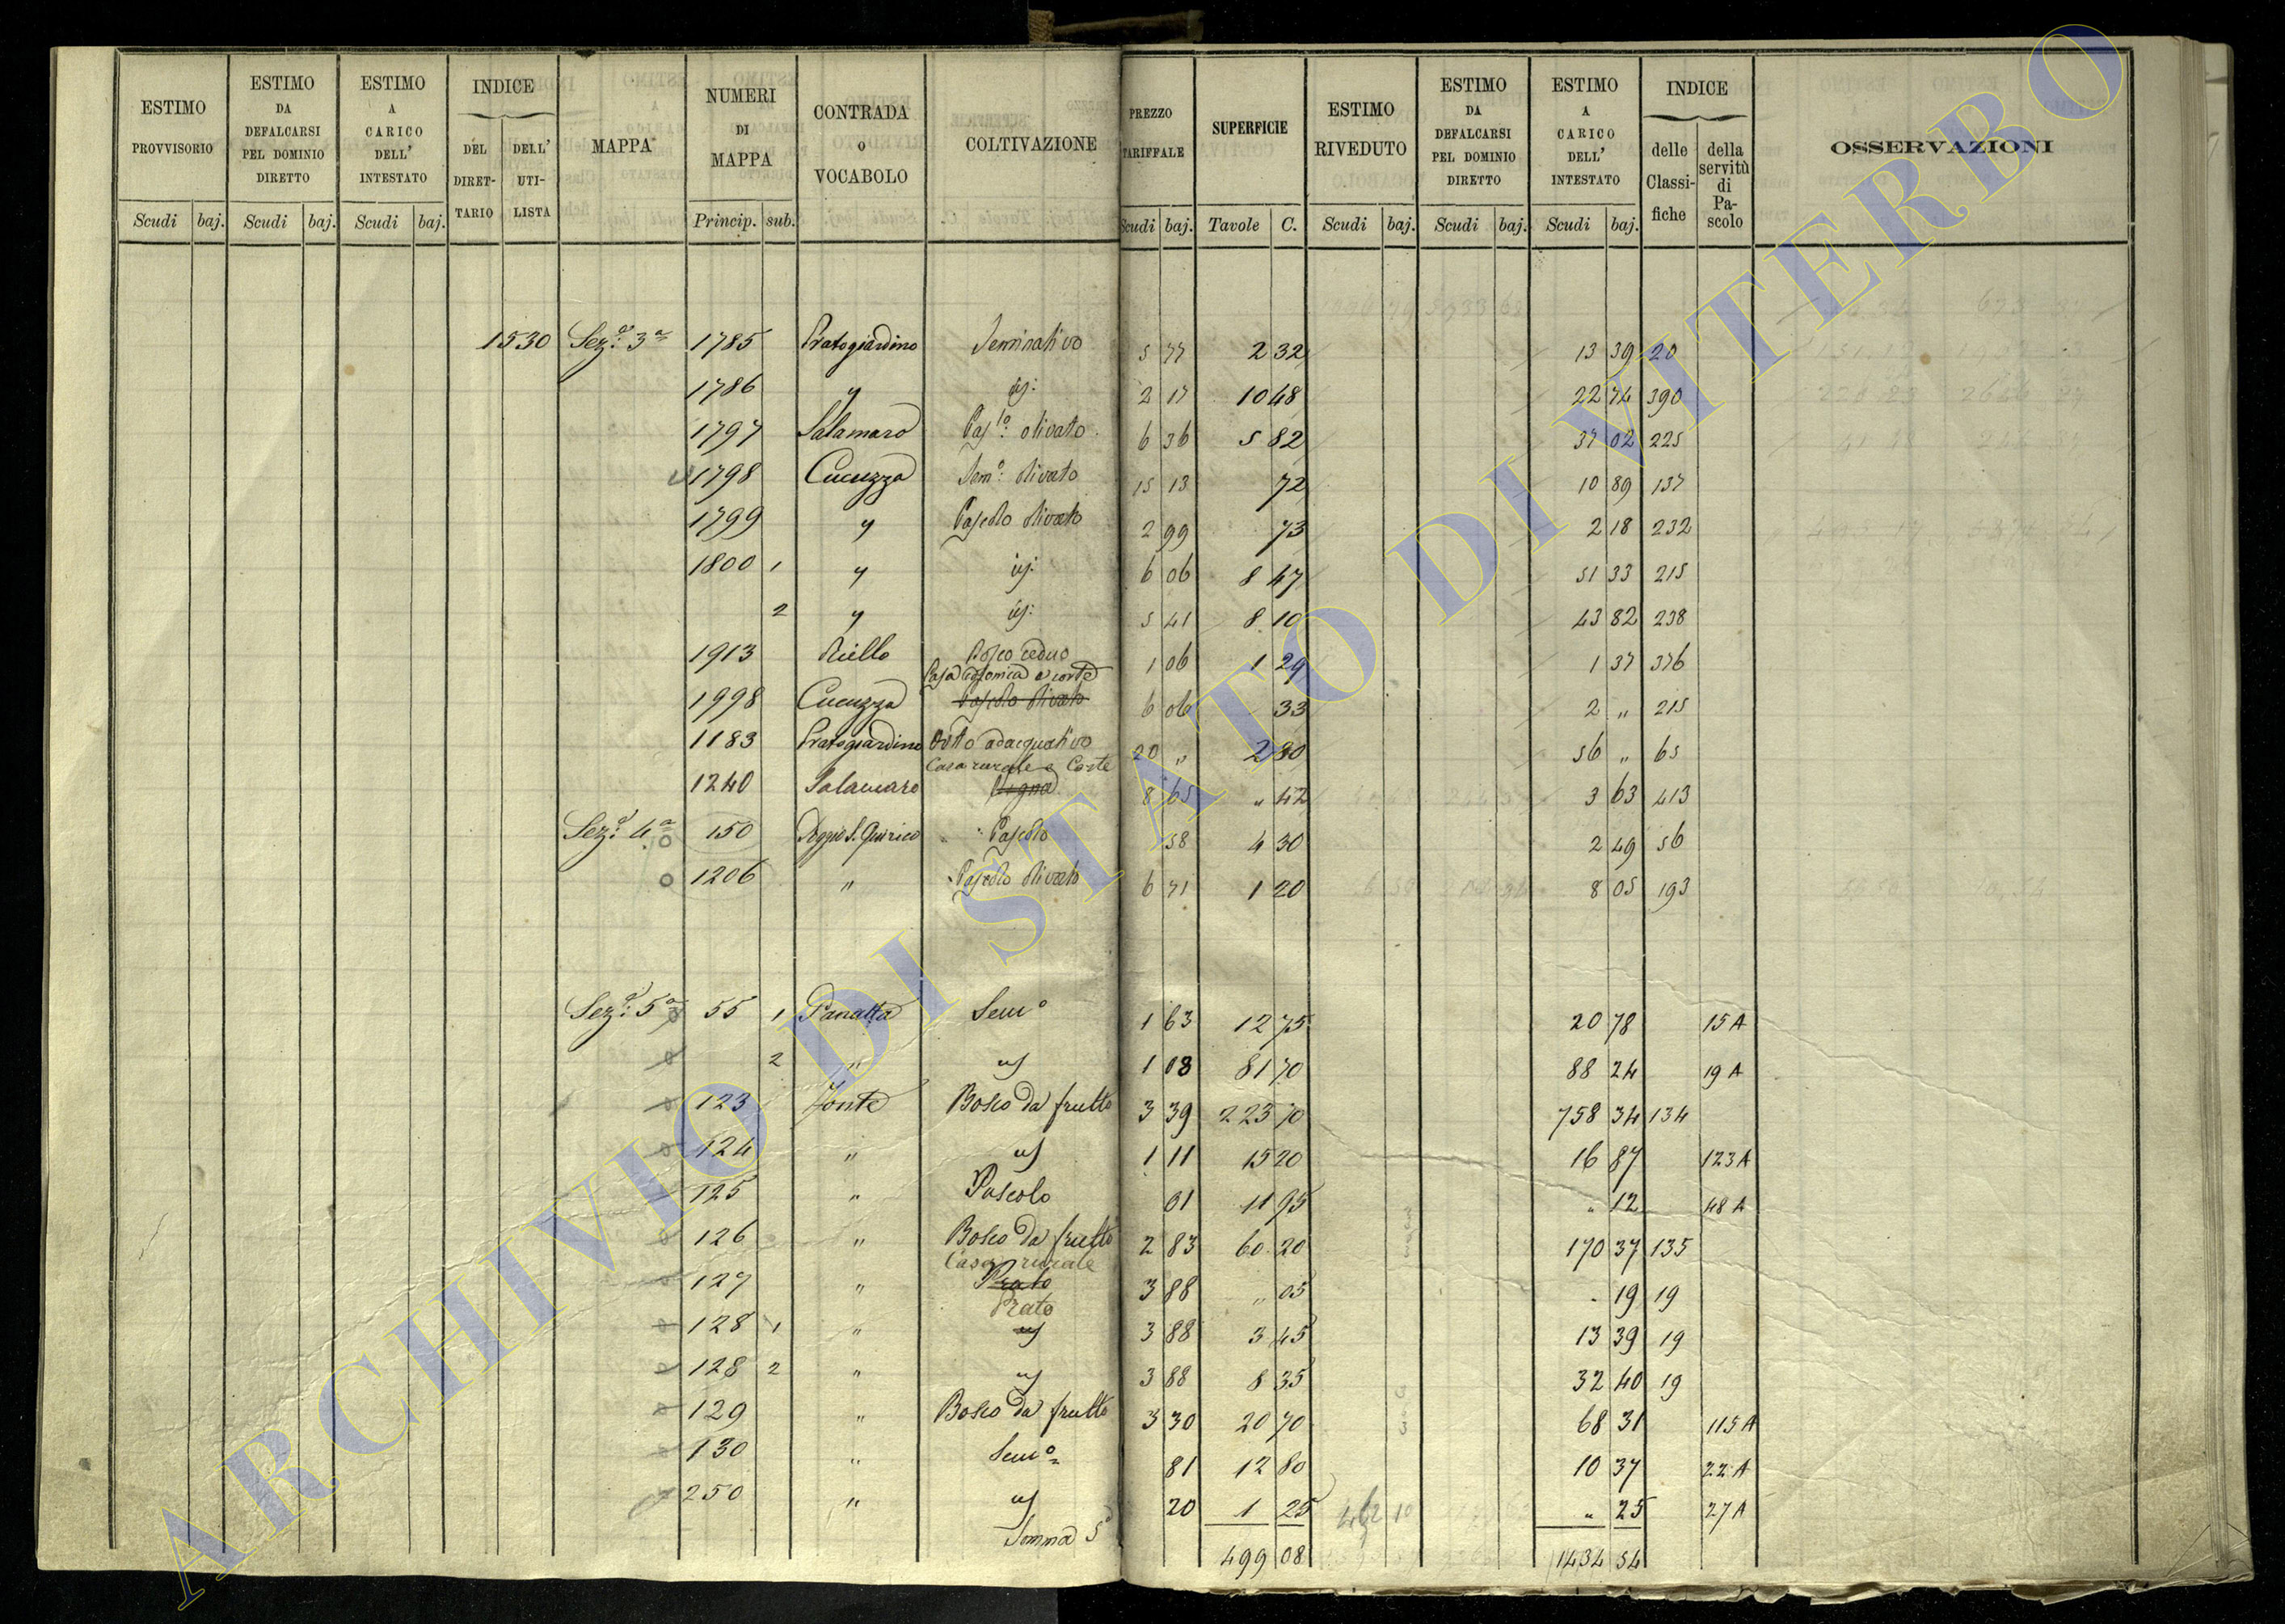 ESTIMO PROVVISORIO Scudi baj.
ESTIMO DA DEFALCARSI PEL DOMINIO DIRETTO Scudi baj.
ESTIMO A CARICO DELL' INTESTATO Scudi baj.
INDICE DEL DIRET-TARIO DELL' UTI-LISTA
MAPPA
NUMERI DI MAPPA Princip. sub.
CONTRADA O VOCABOLO
COLTIVAZIONE
PREZZO TARIFFALE Scudi baj.
SUPERFICIE Tavole C.
ESTIMO RIVEDUTO Scudi baj.
ESTIMO DA DEFALCARSI PEL DOMINIO DIRETTO Scudi baj.
ESTIMO A CARICO DELL' INTESTATO Scudi baj.
INDICE delle Classi-fiche della servitù di Pa-scolo
OSSERVAZIONI
1530 Sez.ª 3ª 1785 Pratogiardino Seminativo 5 77 2 32 13 39 20
1786 " id: 2 17 10 48 22 74 390
1797 Salamaro Pas.lo olivato 6 36 5 82 37 02 225
1798 Cucuzza Sem.o olivato 15 13 72 10 89 137
1799 " Pascolo olivato 2 99 73 2 18 232
1800 1 " id: 6 06 8 47 51 33 215
2 " id: 5 41 8 10 43 82 238
1913 Riello Bosco ceduo 1 06 1 29 1 37 376
Casa colonica e corte
1998 Cucuzza Pascolo olivato 6 06 33 2 " 215
1183 Pratogiardino Orto adacquativo 20 " 2 80 56 " 65
Casa rurale e Corte
1240 Salamaro Vigna 8 65 " 42 3 63 413
Sez.ª 4ª 150 Poggio S. Quirico Pascolo 58 4 30 2 49 56
1206 " Pascolo olivato 6 71 1 20 8 05 193
Sez.ª 5ª 55 1 Panatta Sem.o 1 63 12 75 20 78 15 A
2 " id 1 08 81 70 88 24 19 A
123 Fonte Bosco da frutto 3 39 223 70 758 34 134
124 " id 1 11 15 20 16 87 123 A
125 " Pascolo 01 11 95 " 12 48 A
126 " Bosco da frutto 2 83 60 20 170 37 135
Casa rurale
127 " Prato 3 88 " 05 " 19 19
Prato
128 1 " id 3 88 3 45 13 39 19
128 2 " id 3 88 8 35 32 40 19
129 " Bosco da frutto 3 30 20 70 68 31 115 A
130 " Sem.o 81 12 80 10 37 22 A
250 " id 20 1 25 " 25 27 A
Somma 499 08 1434 54
ARCHIVIO DI STATO DI VITERBO